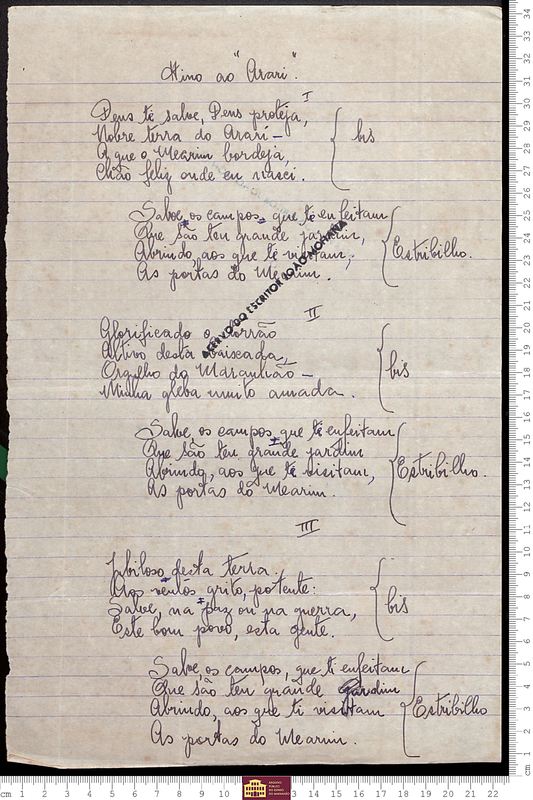 Hino ao "Arari".
I
Deus te salve, Deus proteja,
Nobre terra do Arari –
A que o Mearim bordeja,
Chão feliz onde eu nasci.
bis
Salve, os campos, que te enfeitam
Que são teu grande jardim,
Abrindo, aos que te visitam,
As portas do Mearim.
Estribilho.
ACERVO DO ESCRITOR JOÃO MOHANA
II
Glorificado o torrão
Altivo desta baixada,
Orgulho do Maranhão –
Minha gleba muito amada.
bis
Salve, os campos, que te enfeitam
Que são teu grande jardim
Abrindo, aos que te visitam,
As portas do Mearim.
Estribilho.
III
Jubiloso desta terra
Aos ventos grito, potente:
Salve, na paz ou na guerra,
Este bom povo, esta gente.
bis
Salve, os campos, que te enfeitam
Que são teu grande jardim
Abrindo, aos que ti visitam
As portas do Mearim.
Estribilho